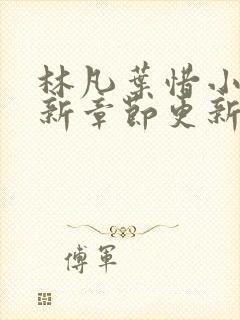 林凡葉惜小
新章節更新
傅軍